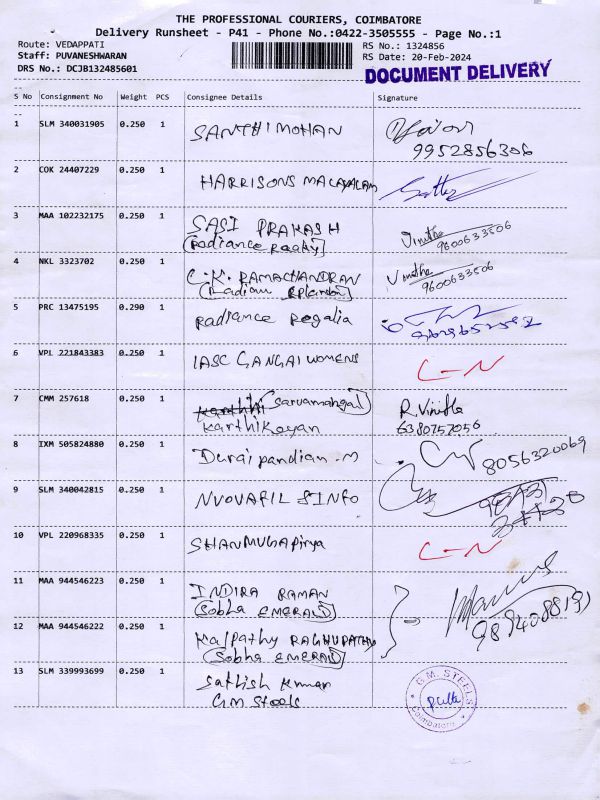 THE PROFESSIONAL COURIERS, COIMBATORE
Delivery Runsheet - P41 - Phone No.:0422-3505555 - Page No.:1
Route: VEDAPPATI
RS No.: 1324856
Staff: PUVANESHWARAN
RS Date: 20-Feb-2024
DRS No.: DCJB132485601
DOCUMENT DELIVERY
S No Consignment No Weight PCS Consignee Details Signature
1 SLM 340031905 0.250 1 SANTHIMOHAN
9952856306
2 COK 24407229 0.250 1 HARRISONS MALAYALAM
3 MAA 102232175 0.250 1 SASI PRAKASH Vinitha
(Radiance 9600633506
4 NKL 3323702 0.250 1 C.K. RAMACHANDRAN Vinitha
9600633506
5 PRC 13475195 0.290 1 Radiance Regalia
6 VPL 221843383 0.250 1 IASC GANGAI WOMENS C-N
7 CMM 257618 0.250 1 Karthi (Sarvamangal) R. Vinitha
Karthikeyan 6380757056
8 IXM 505824880 0.250 1 Duraipandian.M 8056320069
9 SLM 340042815 0.250 1 INFO
10 VPL 220968335 0.250 1 SHANMUGAPriya C-N
11 MAA 944546223 0.250 1 INDIRA RAMAN
(Sobha EMERALD)
12 MAA 944546222 0.250 1 Kalpathy RAGHUPATHY
(Sobha EMERALD)
13 SLM 339993699 0.250 1 Sathish Kumar
GM Steels
G.M. STEELS
Coimbatore